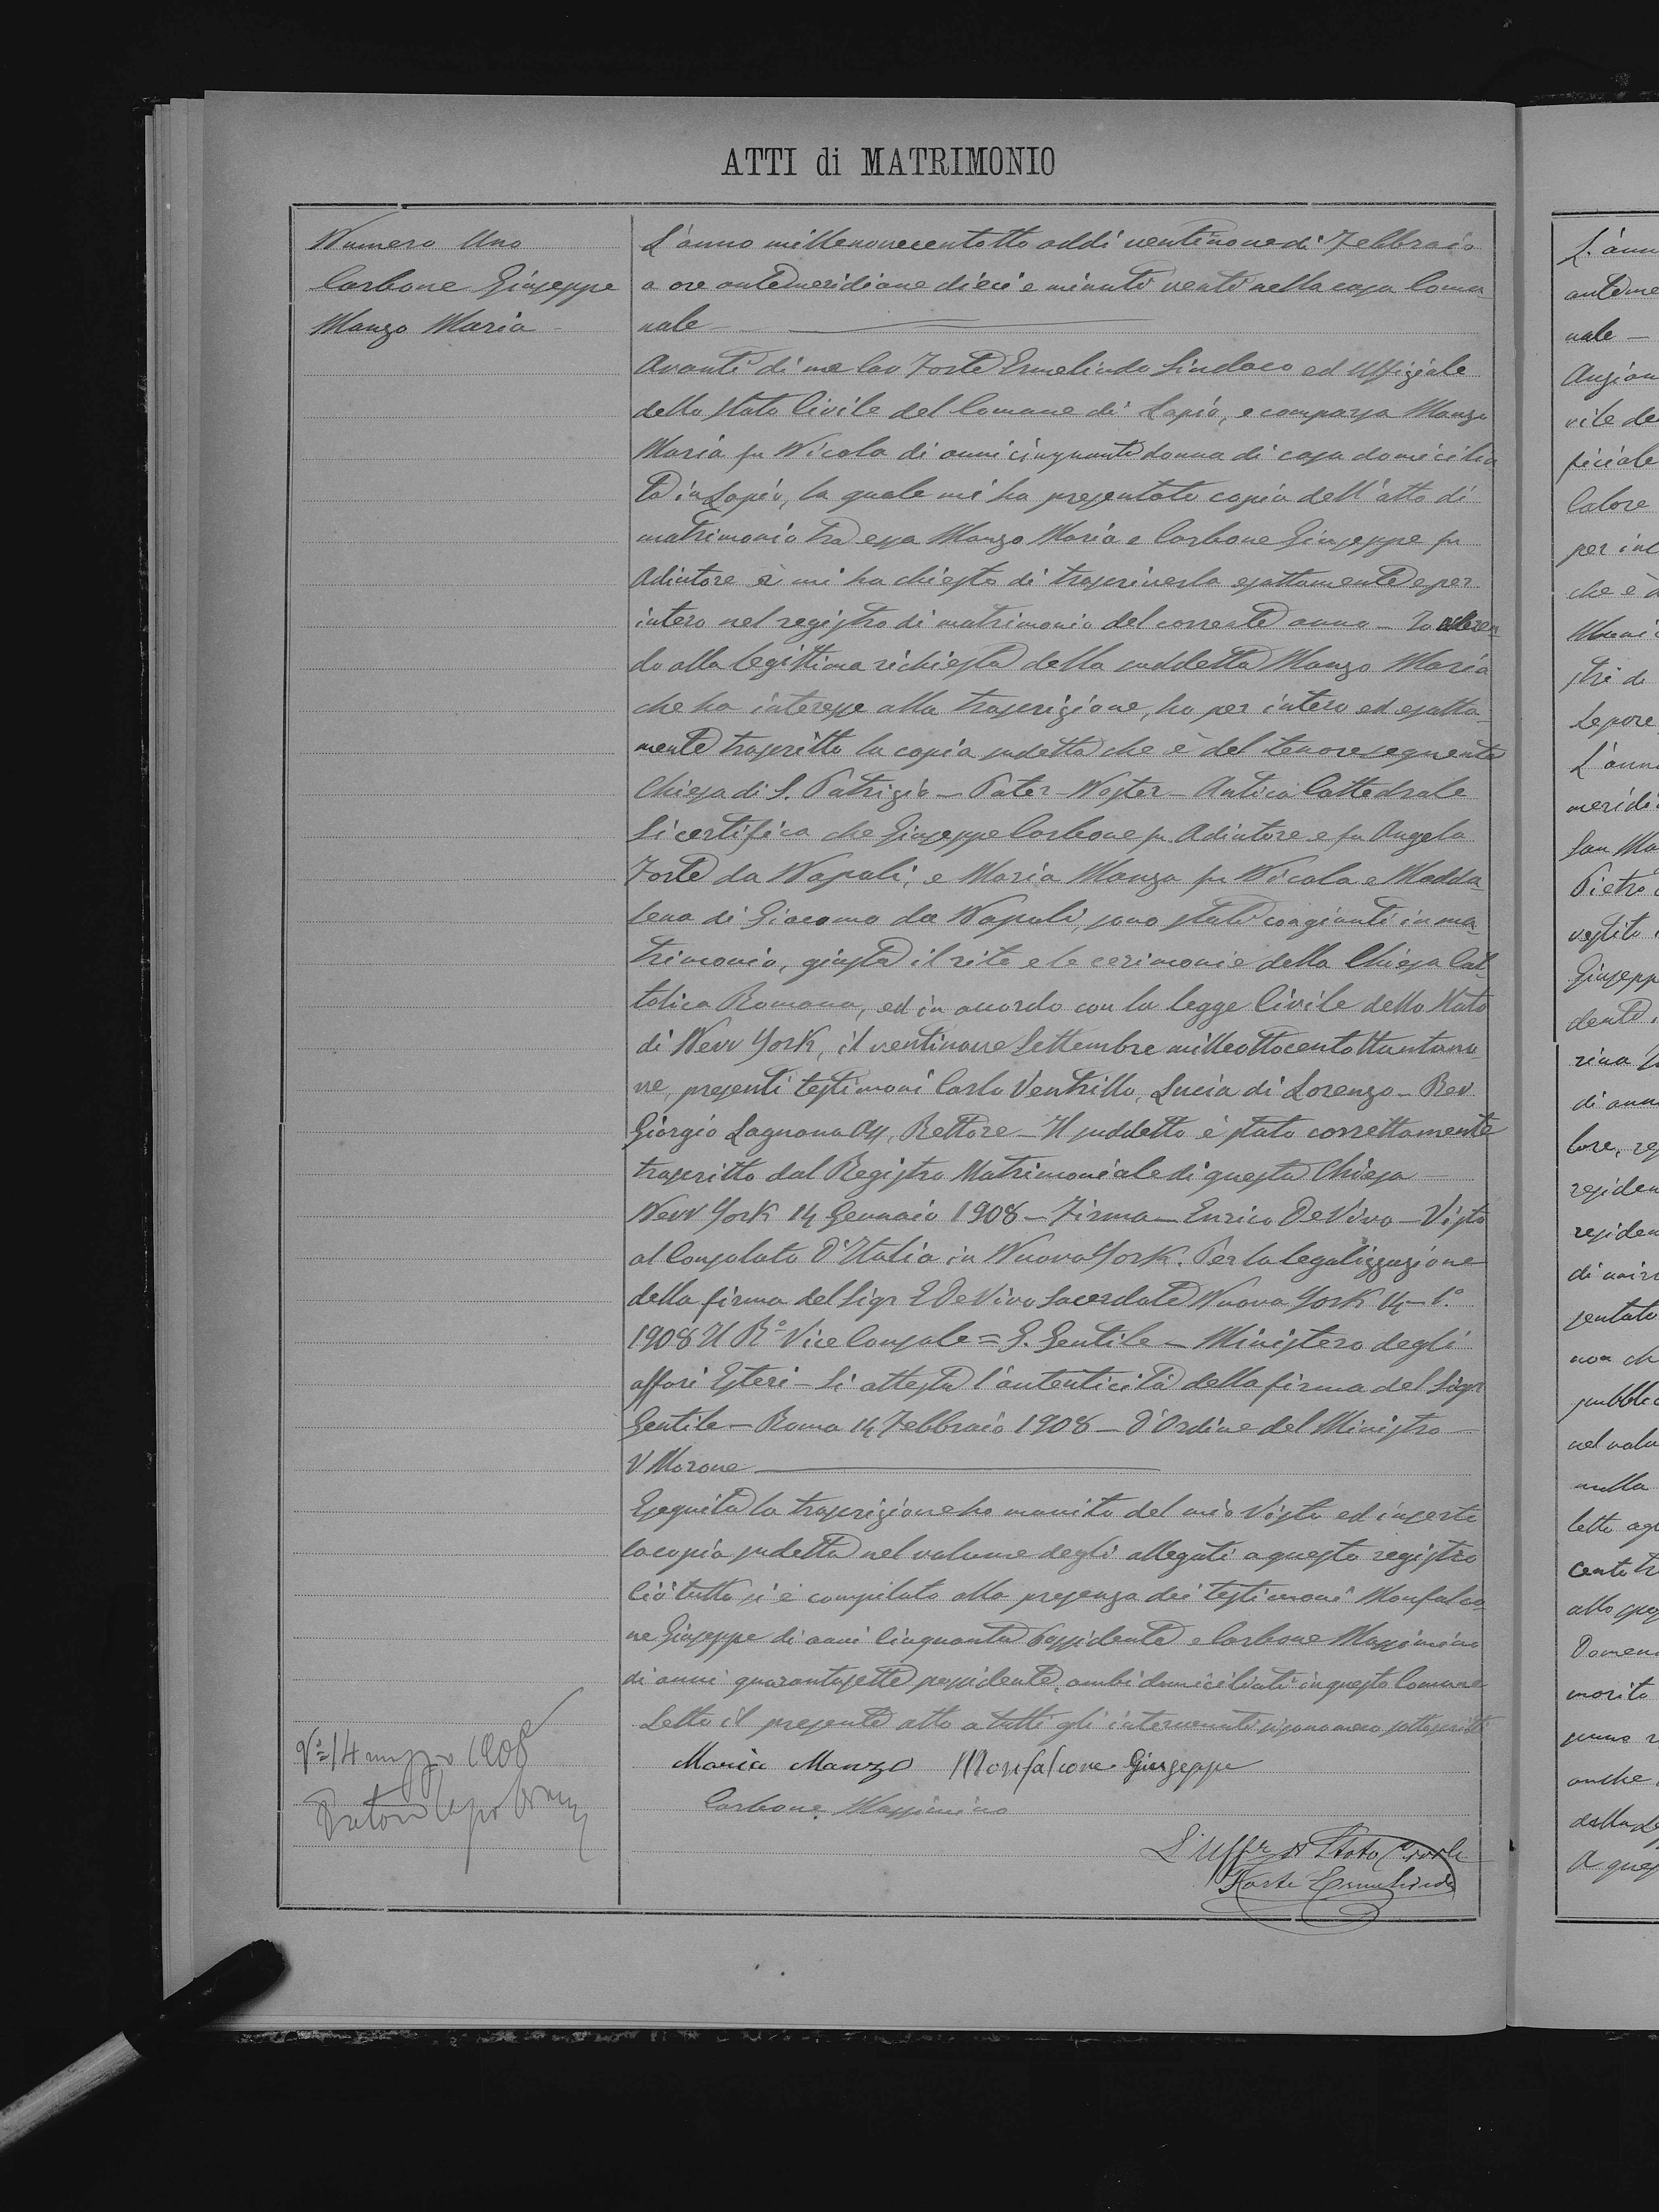 ATTI di MATRIMONIO
Numero Uno
Carbone Giuseppe
Manzo Maria
L'anno millenovecentotto addì ventinove di Febbraio
a ore antemeridiane dieci e minuti venti nella casa Comu
nale
Avanti di me Cav Forte Ermelindo Sindaco ed Uffiziale
dello Stato Civile del Comune di Lapio, è comparsa Manzo
Maria fu Nicola di anni cinquanta donna di casa domicilia
ta in Lapio, la quale mi ha presentato copia dell'atto di
matrimonio tra essa Manzo Maria e Carbone Giuseppe fu
Adiutore e mi ha chiesto di trascriverla esattamente e per
intero nel registro di matrimonio del corrente anno - Io aderen
do alla legittima richiesta della suddetta Manzo Maria
che ha interesse alla trascrizione, ho per intero ed esatta
mente trascritto la copia sudetta che è del tenore seguente
Chiesa di S. Patrizio - Pater - Noster - Antica Cattedrale
Si certifica che Giuseppe Carbone fu Adiutore e fu Angela
Forte da Napoli, e Maria Manzo fu Nicola e Madda
lena di Giacomo da Napoli, sono stati congiunti in ma
trimonio, giusta il rito e le cerimonie della Chiesa Cat
tolica Romana, ed in accordo con la legge Civile dello Stato
di New York, il ventinove Settembre milleottocentottantano
ve, presenti testimoni Carlo Ventrillo, Lucia di Lorenzo - Rev.
Giorgio Lagnana Ass. Rettore - Il suddetto è stato correttamente
trascritto dal Registro Matrimoniale di questa Chiesa -
New York 14 Gennaio 1908 - Firma - Enrico De Vivo - Visto
al Consolato D'Italia in Nuova York. Per la legalizzazione
della firma del Sigr E De Vivo Sacerdote Nuova York 14 - 1°
1908 Il R° Vice Console = G. Gentile - Ministero degli
affari Esteri - Si attesta l'autenticità della firma del Sigr
Gentile - Roma 14 Febbraio 1908 - D'Ordine del Ministro -
V Morone
Eseguita la trascrizione ho munito del mio Visto ed inserto
la copia sudetta nel volume degli allegati a questo registro
Ciò tutto si è compilato alla presenza dei testimoni Monfalco
ne Giuseppe di anni Cinquanta Possidente e Carbone Massimino
di anni quarantasette possidente, ambi domiciliati in questo Comune
Letto il presente atto a tutti gli intervenuti si sono meco sottoscritti
Maria Manzo Monfalcone Giuseppe
Carbone Massimino
L'Uffle di Stato Civile
Forte Ermelindo
V° 14 maggio 1908
L'ann
antime
nale -
vile de
ficiale
Calore
che è
L'ann
meridi
San Ma
Pietro
vestito
Giusepp
dente
rina
di ann
lore,
residen
residen
sentato
non ch
pubblic
nel volu
nulla
letto
cento
marito
anche